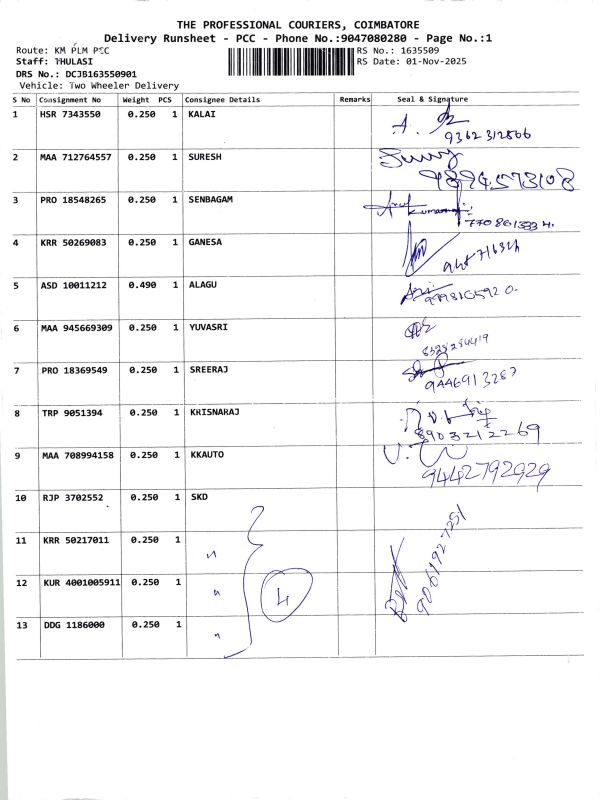 THE PROFESSIONAL COURIERS, COIMBATORE
Delivery Runsheet - PCC - Phone No.:9047080280 - Page No.:1
Route: KM PLM PCC RS No.: 1635509
Staff: THULASI RS Date: 01-Nov-2025
DRS No.: DCJB163550901
Vehicle: Two Wheeler Delivery
S No Consignment No Weight PCS Consignee Details Remarks Seal & Signature
1 HSR 7343550 0.250 1 KALAI
9362312806
2 MAA 712764557 0.250 1 SURESH
9894573108
3 PRO 18548265 0.250 1 SENBAGAM
4 KRR 50269083 0.250 1 GANESA
5 ASD 10011212 0.490 1 ALAGU
6 MAA 945669309 0.250 1 YUVASRI
7 PRO 18369549 0.250 1 SREERAJ
9446913287
8 TRP 9051394 0.250 1 KRISNARAJ
8903212269
9 MAA 708994158 0.250 1 KKAUTO
9442792929
10 RJP 3702552 0.250 1 SKD
11 KRR 50217011 0.250 1 "
12 KUR 4001005911 0.250 1 " 4
13 DDG 1186000 0.250 1 "